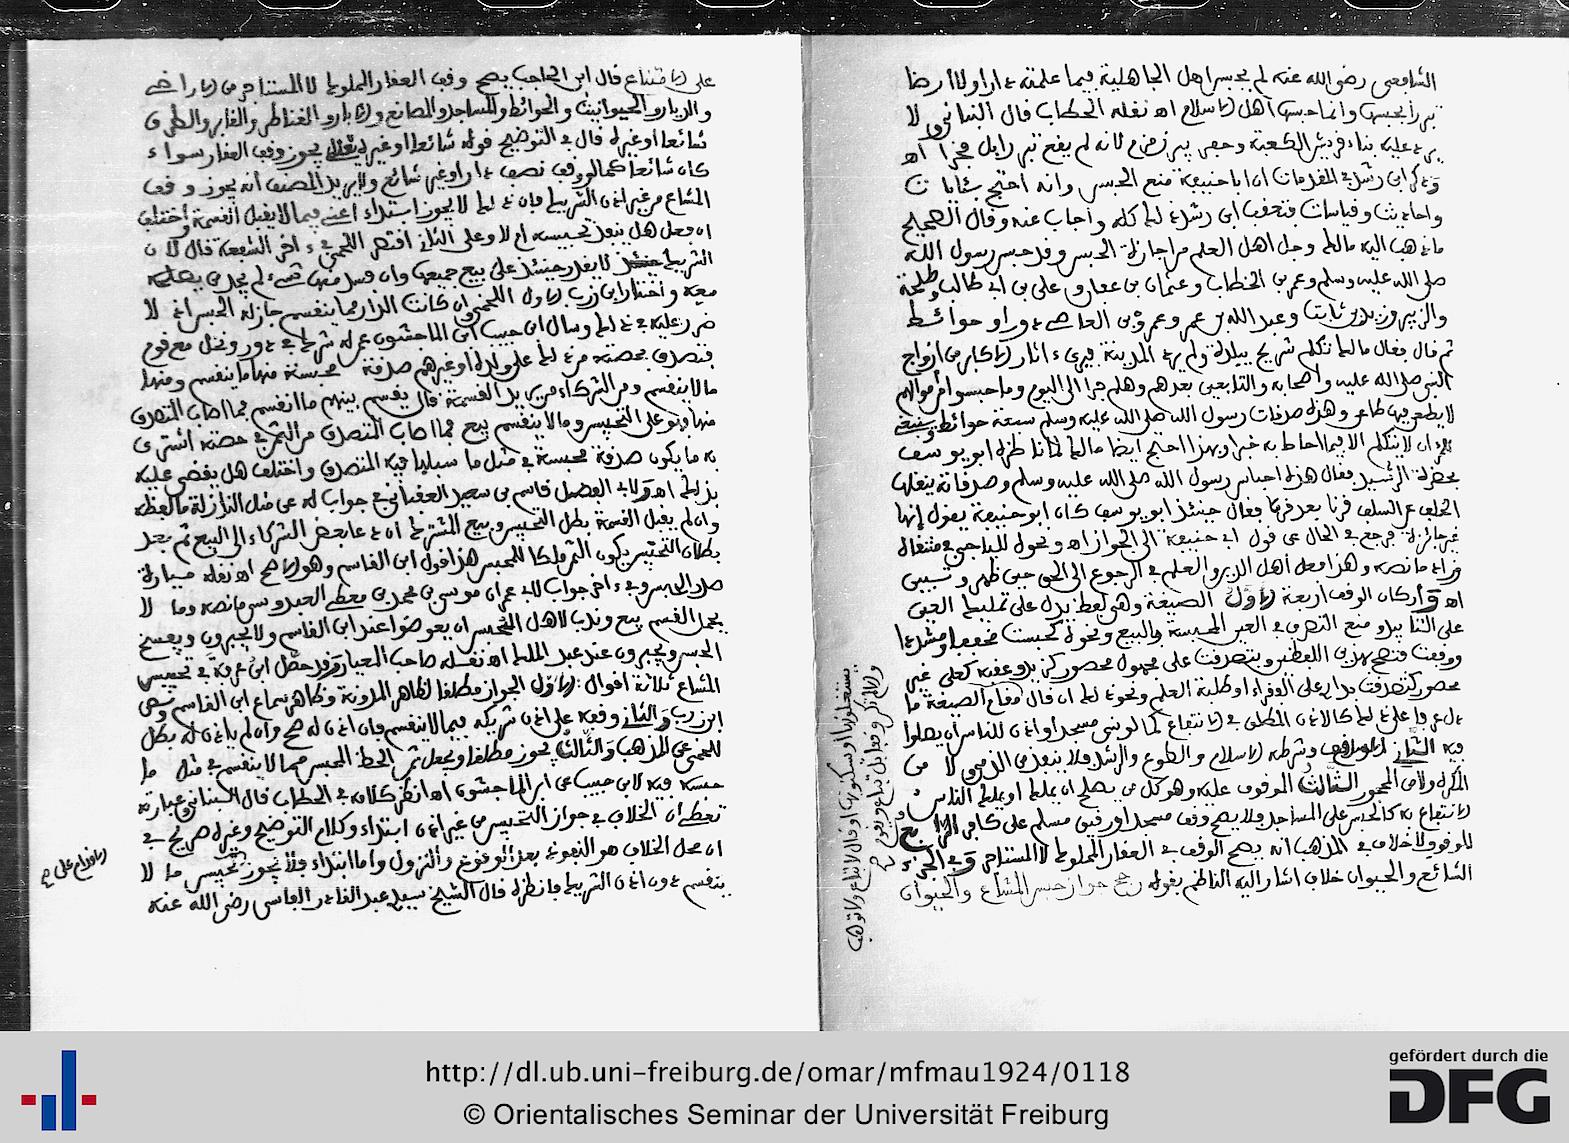 الشافعي رضي الله عنه لم يحبس اهل الجاهلية فيما علمته دارا ولا ارضا
تبررا بحبسها وانما حبس اهل الاسلام اه نقله الحطاب قال البناني ولا
يرد عليه بناء قريش الكعبة وحفر بير زمزم لانه لم يقع تبررا بل فخرا اه
وذكر ابن رشد في المقدمات ان ابا حنيفة منع الحبس وانه احتج بئايات
واحاديث وقياسات فتعقب ابن رشد ذلك كله واجاب عنه وقال الصحيح
ما ذهب اليه مالك وجل اهل العلم من اجازة الحبس وقد حبس رسول الله
صلى الله عليه وسلم وعمر بن الخطاب وعثمان بن عفان وعلي بن ابي طالب وطلحة
والزبير وزيد بن ثابت وعبد الله بن عمر وعمرو بن العاصي دورا وحوائط
ثم قال فقال مالك تكلم شريح ببلده ولم يرد المدينة فيرى ءاثار الاكابر من ازواج
النبي صلى الله عليه واصحابه والتابعين بعدهم وهلم جرا الى اليوم وما حبسوا من اموالهم
لا يطعن فيها طاعن وهذه صدقات رسول الله صلى الله عليه وسلم سبعة حوائط وينبغي
للمرء ان لا يتكلم الا فيما احاط به خبرا وبهذا احتج ايضا مالك لما ناظره ابو يوسف
بحضرة الرشيد فقال هذه احباس رسول الله صلى الله عليه وسلم وصدقاته ينقلها
الخلف عن السلف قرنا بعد قرن فقال حينئذ ابو يوسف كان ابو حنيفة يقول انها
غير جائزة فرجع في الحال عن قول ابي حنيفة الى الجواز اه ونحوه للباجي في منتقاه
وزاد ما نصه وهذا فعل اهل الدين والعلم في الرجوع الى الحق حين ظهر وتبين
اه واركان الوقف اربعة الاول الصيغة وهي لفظ يدل على تمليك العين
على التابيد ومنع التصرف في العين المحبسة بالبيع ونحوه كحبست
ووقفت فتصح بهذين اللفظين وبتصدقت على مجهول محصور كزيد وعقبه كعلى غير
محصور كتصدقت بداري على الفقراء او طلبة العلم ونحو ذلك ان قال وقام الصيغة ما
دل عرفا على ذلك كالاذن المطلق في الانتفاع كما لو بنى مسجدا واذن للناس ان يصلوا
فيه الثاني الواقف وشرطه الاسلام والطوع والرشد فلا ينفذ من الذمي ولا من
المكره ولا من المحجور الثالث الموقوف عليه وهو كل من يصلح ان يملك او يملك الناس
الانتفاع به كالحبس على المساجد فلا يصح وقف مسجد او رقيق مسلم على كافر الرابع
الموقوف ولا خلاف في المذهب انه يصح الوقف في العقار المملوك لا المستاجر وفي الجزء
الشائع والحيوان خلاف اشار اليه الناظم بقوله جواز حبس المشاع والحيوان
يستغلونها او يسكنونها او قال لا تباع ولا توهب
على الامتناع قال ابن الحاجب يصح وقف العقار المملوك لا المستاجر من الاراضي
والديار والحيوانيت والحوائط والمساجد والمصانع والابار والقناطر والمقابر والطرق
شائعا او غيره قال في التوضيح قوله شائعا او غيره يعني يجوز وقف العقار سواء
كان شائعا كما لو وقف نصف دار او غير شائع ولا يريد المصنف انه يجوز وقف
المشاع من غير اذن الشريك فان ذلك لا يجوز ابتداء اعني فيما لا يقبل القسمة واختلف
ان فعل هل ينفذ تحبيسه ام لا وعلى الثاني اقتصر اللخمي في ءاخر الشفعة قال لان
الشريك لا يقدر حينئذ على بيع جميعها وان فسد منها شيء لم يجد من يصلحه
معه واختار ابن زرب الاول اللخمي وان كانت الدار مما ينقسم جاز له الحبس اذ لا
ضرر عليه في ذلك وسال ابن حبيب ابن الماجشون عمن له شرك في دور ونخل مع قوم
فتصدق بحصته من ذلك على ولده او غيرهم صدقة محبسة منها ما ينقسم ومنها
ما لا ينقسم ومن الشركاء من يريد القسمة قال يقسم بينهم ما انقسم فما اصاب المتصدق
منها فهو على التحبيس وما لا ينقسم بيع فما اصاب المتصدق من الثمن في حصته اشترى
به ما يكون صدقة محبسة في مثل ما سبلها فيه المتصدق واختلف هل يقضى عليه
بذلك اه ولابي الفضل قاسم بن سعيد العقباني في جواب له عن مثل النازلة ما لفظه
وان لم يقبل القسمة بطل التحبيس وبيع المشترك ان دعا بعض الشركاء الى البيع ثم بعد
بطلان التحبيس يكون الثمن ملكا للمحبس هذا قول ابن القاسم وهو الاصح اه نقله ميارة
صدر الحبس وفي ءاخر جواب لابي عمران موسى بن محمد بن معطي العبدوسي ما نصه وما لا
يحمل القسم بيع وندب لاهل التحبيس ان يعوضوا عند ابن القاسم ولا يجبرون ويفسخ
الحبس ويجبرون عند عبد الملك اه نقله صاحب المعيار وقد حصل ابن عرفة في تحبيس
المشاع ثلاثة اقوال الاول الجواز مطلقا لظاهر المدونة وظاهر سماع ابن القاسم ونص
ابن زرب والثاني وقفه على اذن شريكه فيما لا ينقسم فان اذن له صح وان لم ياذن له بطل
للخمي عن المذهب والثالث يجوز مطلقا ويجعل ثمن الحظ المحبس مما لا ينقسم في مثل ما
حبسه فيه لابن حبيب عن ابن الماجشون اه انظر كلامه في الحطاب قال البناني وعبارته
تعطي ان الخلاف في جواز التحبيس من غير اذن ابتداء وكلام التوضيح وغيره صريح في
ان محل الخلاف هو النفوذ بعد الوقوع والنزول واما ابتداء فلا يجوز تحبيس ما لا
ينقسم دون اذن الشريك فانظره قال الشيخ سيدي عبد القادر الفاسي رضي الله عنه
http://dl.ub.uni-freiburg.de/omar/mfmau1924/0118
© Orientalisches Seminar der Universität Freiburg
gefördert durch die
DFG